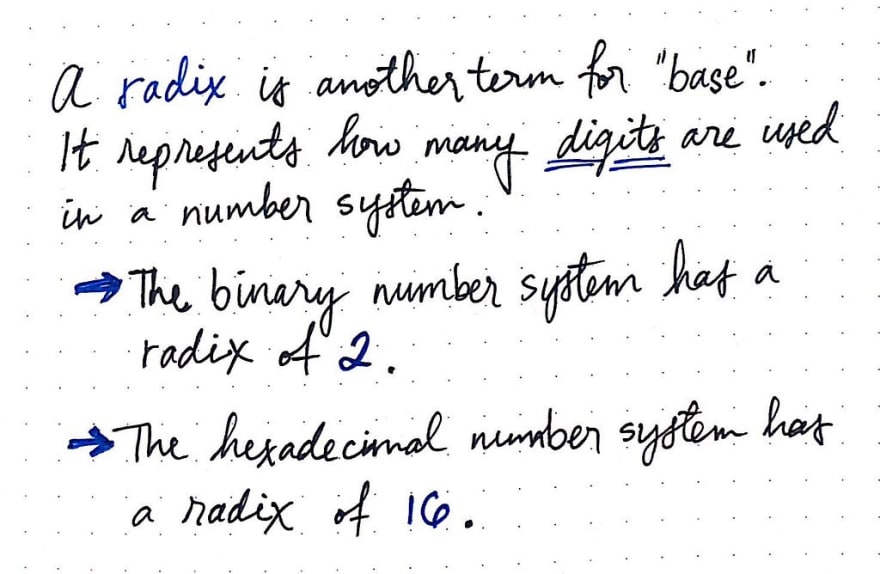 A radix is another term for "base".
It represents how many digits are used
in a number system.
→ The binary number system has a
radix of 2.
→ The hexadecimal number system has
a radix of 16.